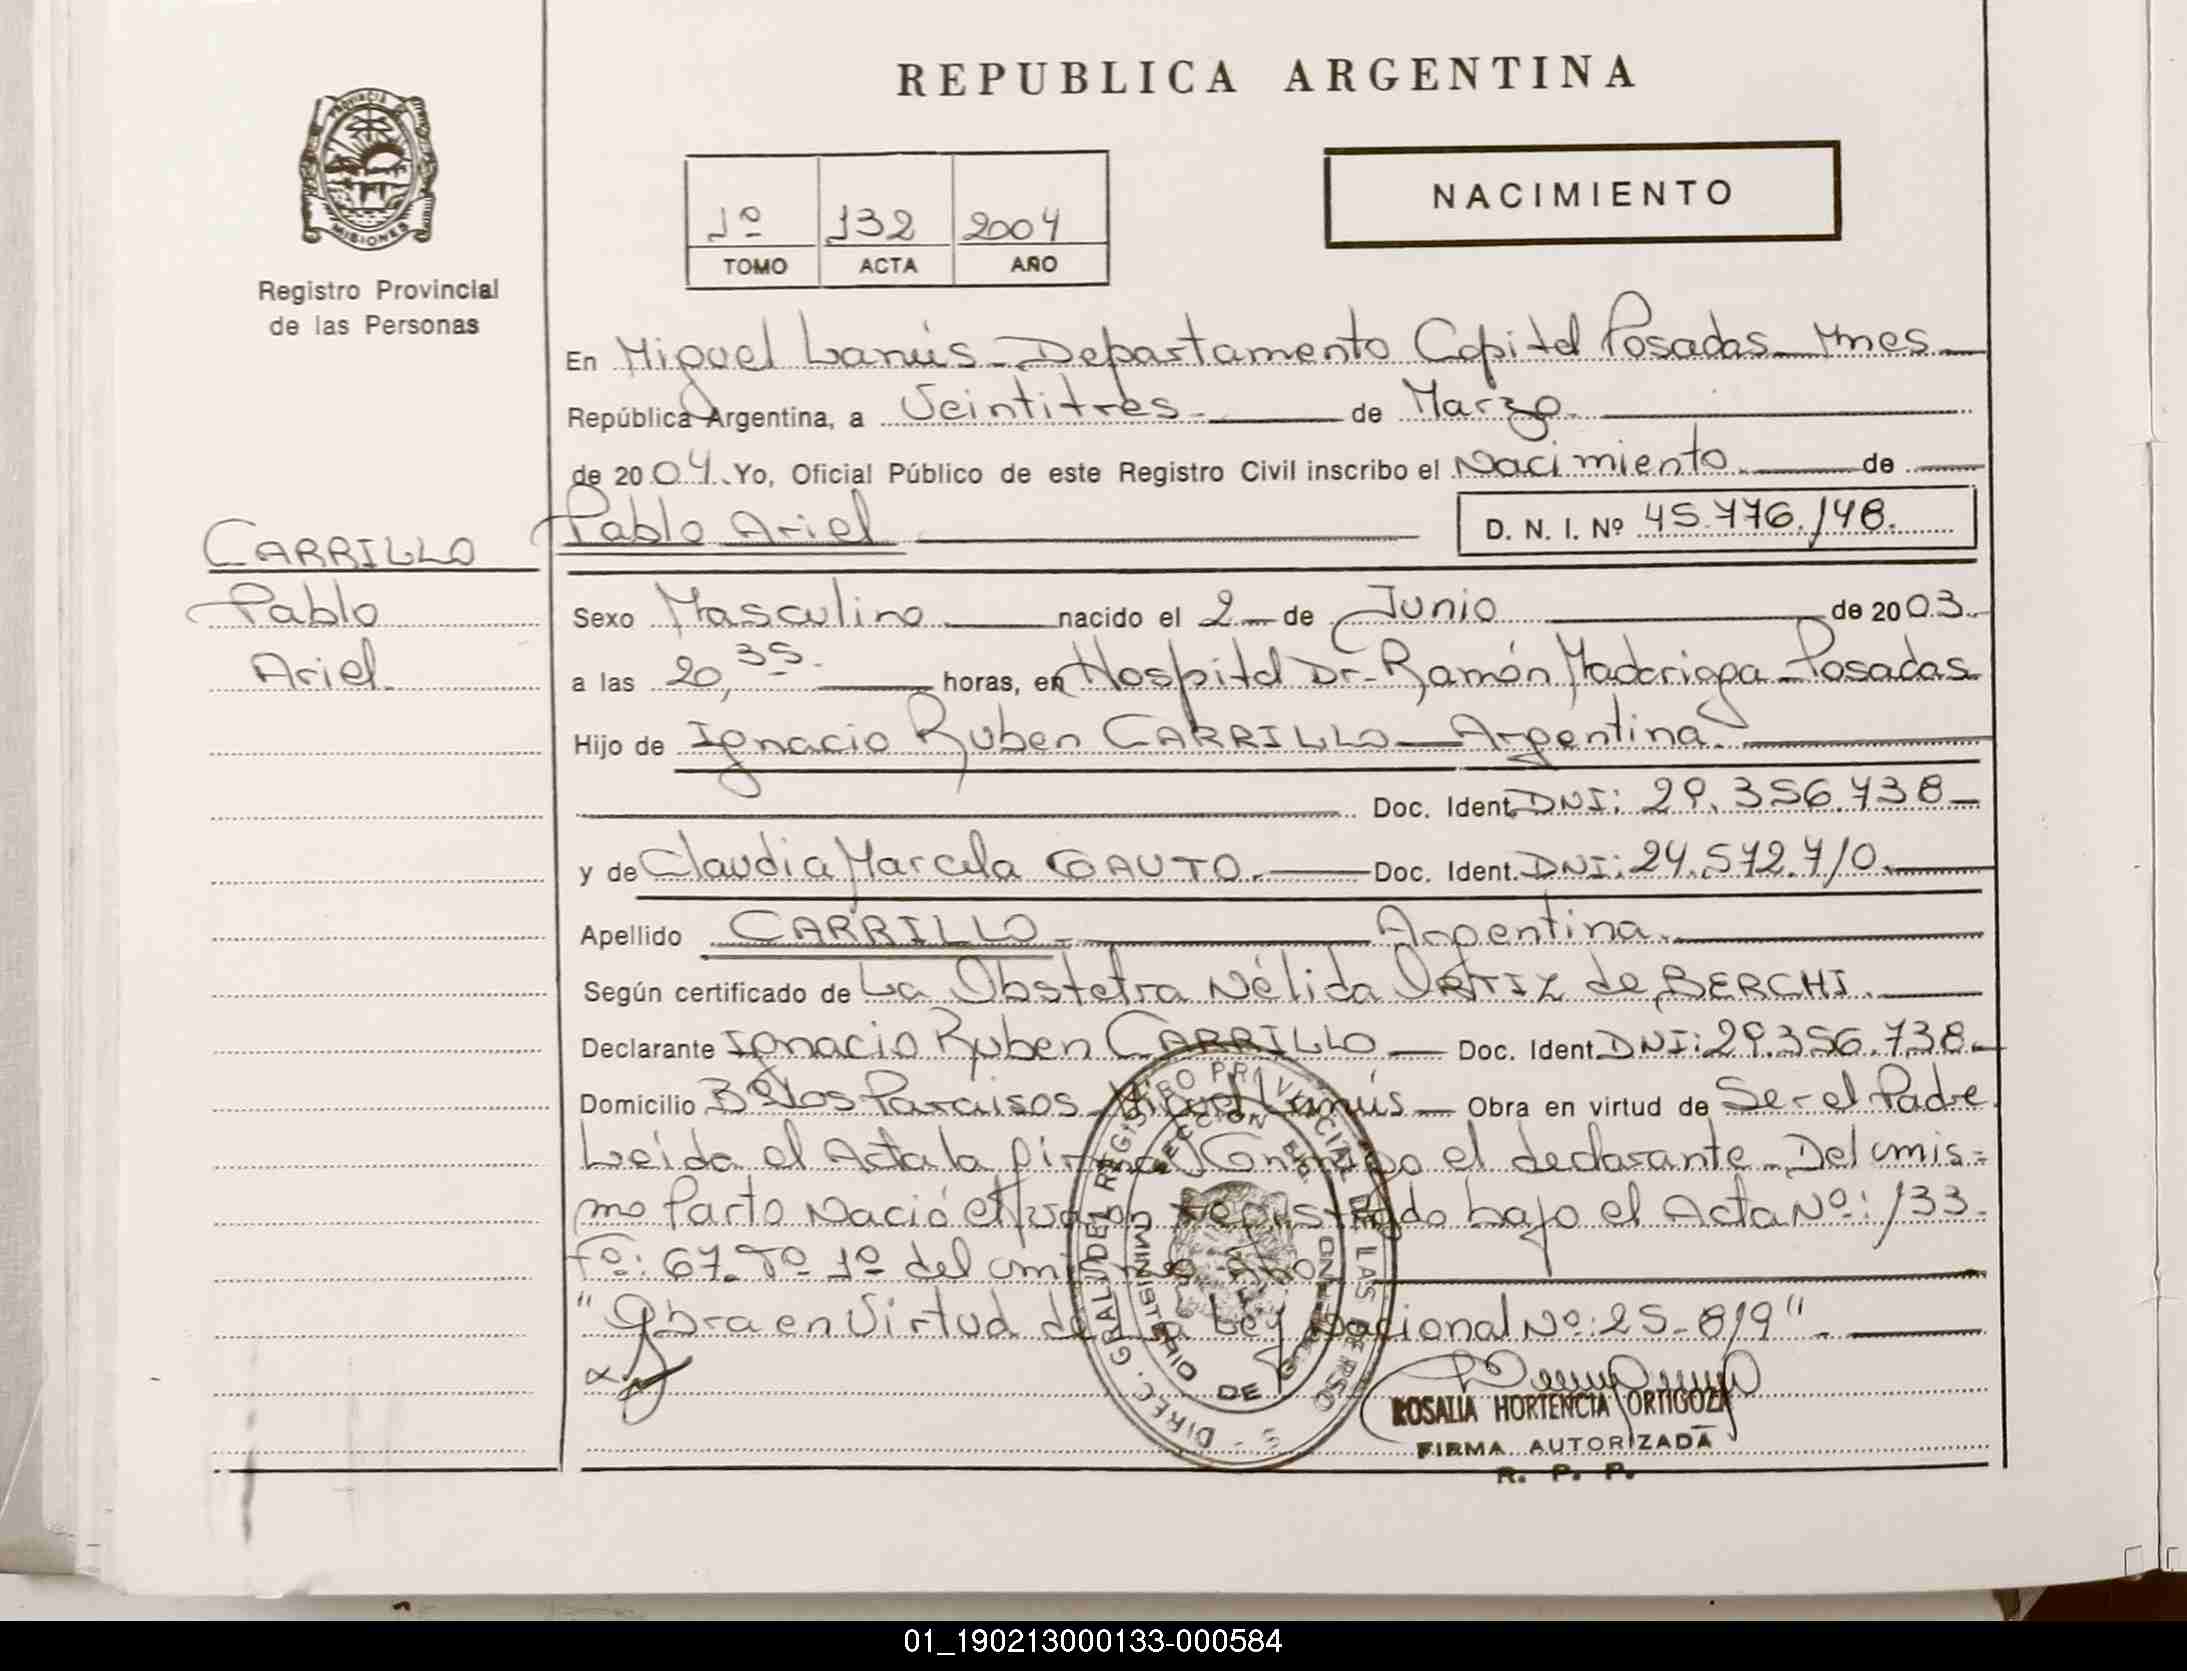 REPUBLICA ARGENTINA
PROVINCIA DE
MISIONES
Registro Provincial
de las Personas
1º 132 2004
TOMO ACTA AÑO
NACIMIENTO
En Miguel Lanús - Departamento Capital Posadas - Mnes
República Argentina, a Veintitrés de Marzo
de 2004. Yo, Oficial Público de este Registro Civil inscribo el Nacimiento de
Pablo Ariel D. N. I. Nº 45.776.148.
CARRILLO
Pablo
Ariel
Sexo Masculino nacido el 2 de Junio de 2003.
a las 20,35. horas, en Hospital Dr. Ramón Madariaga - Posadas
Hijo de Ignacio Ruben CARRILLO - Argentina.
Doc. Ident. DNI: 29.356.738
y de Claudia Marcela GAUTO. Doc. Ident. DNI: 24.572.710.
Apellido CARRILLO - Argentina.
Según certificado de La Obstetra Nélida ORTIZ de BERCHI.
Declarante Ignacio Ruben CARRILLO - Doc. Ident. DNI: 29.356.738.
Domicilio Bº Los Paraisos - Miguel Lanús - Obra en virtud de Ser el Padre
Leída el Acta la firma Conmigo el declarante - Del mis=
mo Parto Nació el varón registrado bajo el Acta Nº: 133
Fº: 67. Tº 1º del mismo Año
"Obra en Virtud de la Ley Nacional Nº: 25.819".
DIREC. GRAL. DEL REGISTRO PROVINCIAL DE LAS PERSO
MINISTERIO DE
ROSALIA HORTENCIA ORTIGOZA
FIRMA AUTORIZADA
R. P. P.
01_190213000133-000584